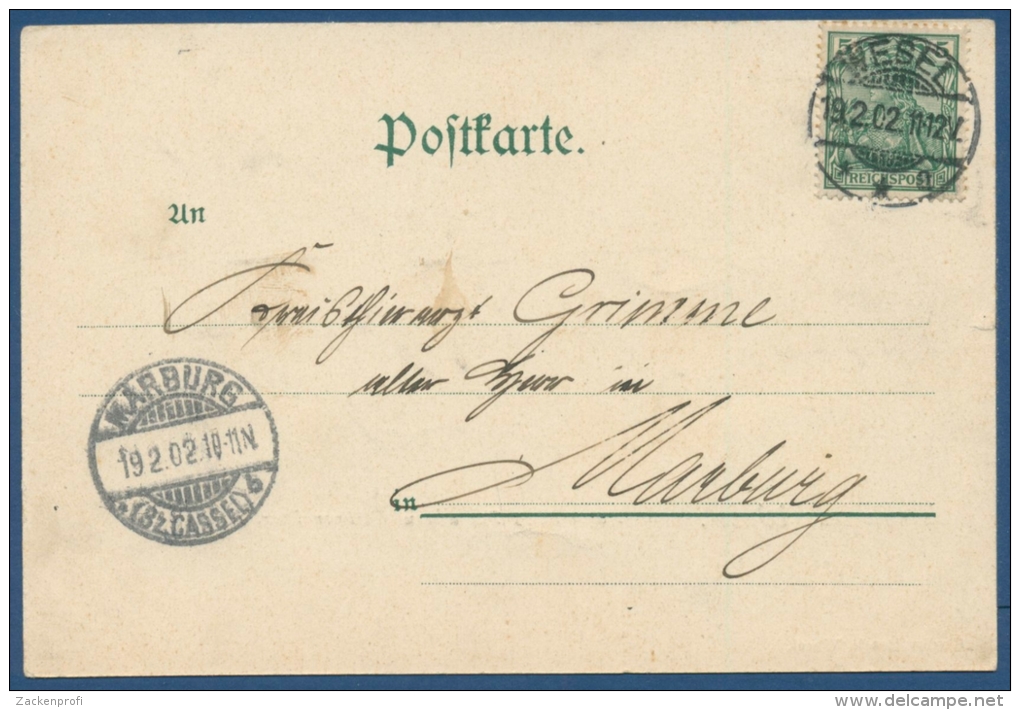 5 5
REICHSPOST
WESEL
19.2.02 11-12V.
* *
Postkarte.
An
Kreisthierarzt Grimme
alter Herr in
MARBURG
19.2.02.10-11N.
* (Bz. CASSEL) b
in Marburg
Zackenprofi
delcampe.net